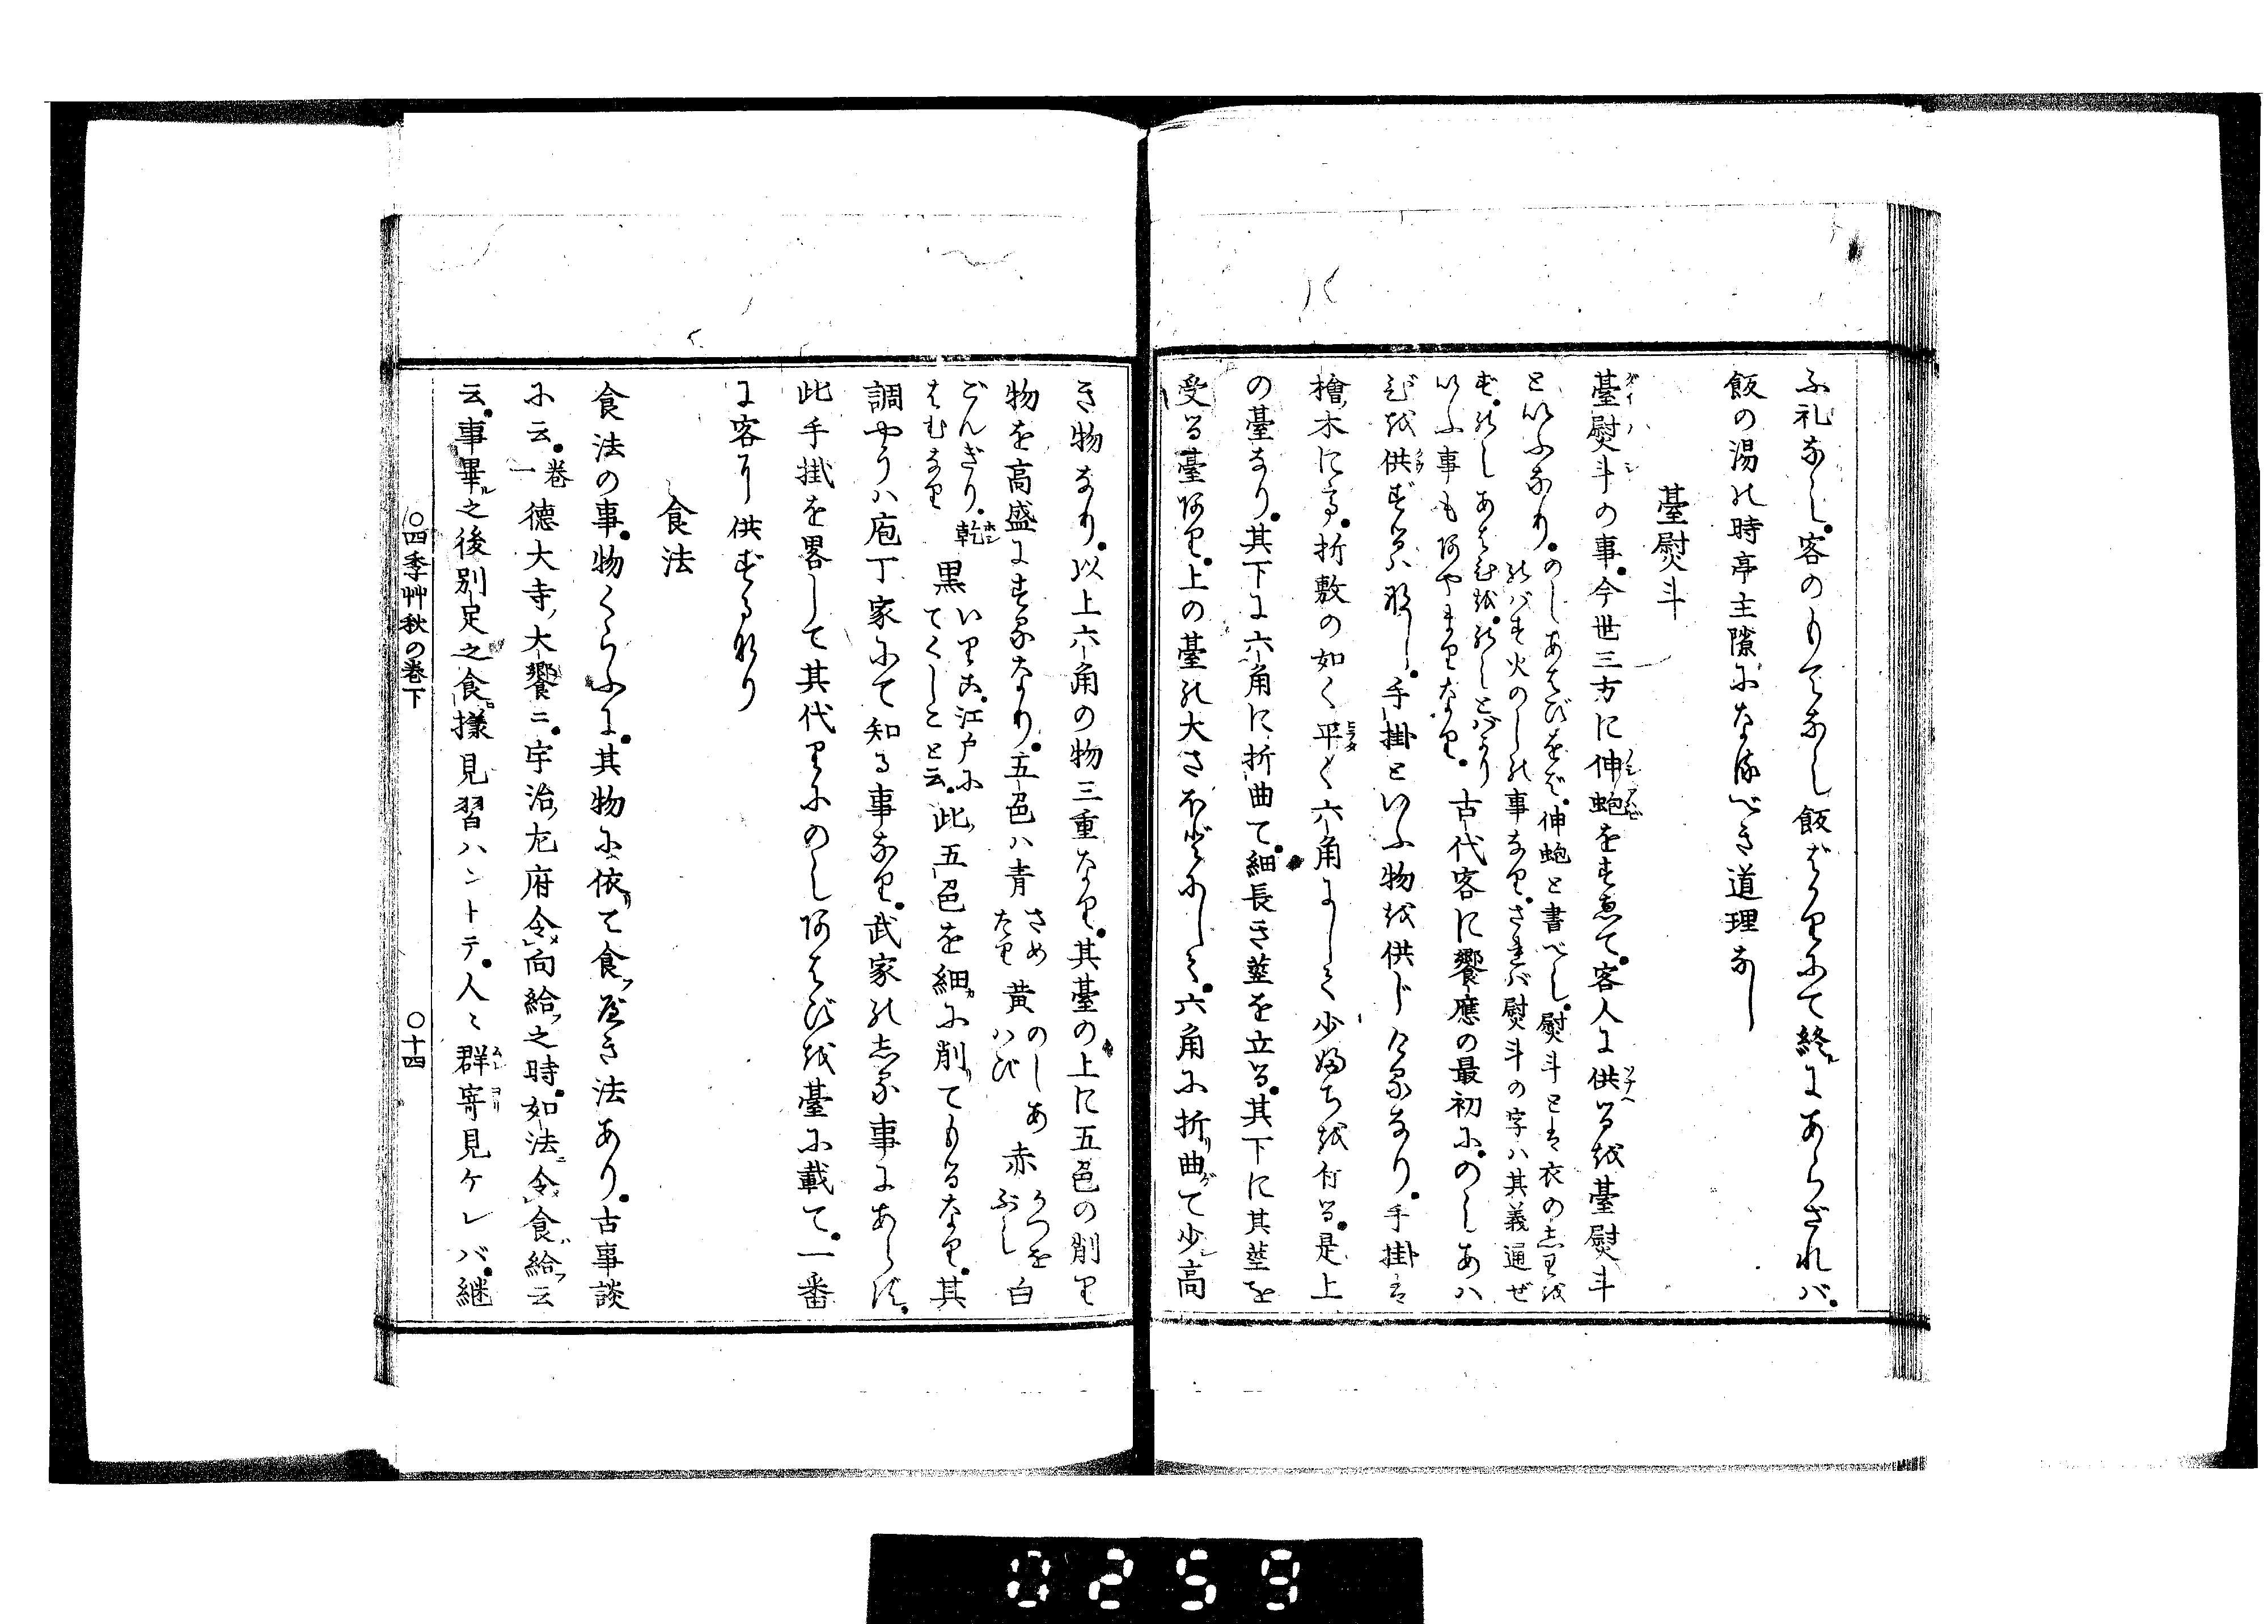 ふ礼なし。客のもてなし飯ばかりにて終にあらざれバ。
飯の湯の時亭主隙になるべき道理なし
臺熨斗
臺熨斗の事。今世三方に伸蚫をすゑて。客人に供るを臺熨斗
といふなり。のしあはびをば。伸蚫と書べし。熨斗とは衣のしわを
のバす火のしの事なり。されバ熨斗の字ハ其義通ぜ
ず。のしあはびを。のしとバかり
いふ事もあやまりなり。古代客に饗應の最初に。のしあハ
びを供ずるハなし。手掛といふ物を供じけるなり。手掛は
檜木にて。折敷の如く平く六角にして少ふちを付る。是上
の臺なり。其下に六角に折曲て。細長き莖を立る。其下に其莖を
受る臺あり。上の臺の大さほどにして。六角に折曲て少高
き物なり。以上六角の物三重なり。其臺の上に五色の削り
物を高盛にするなり。五色ハ青さめたり黄のしあハび赤かつをぶし白
ごんぎり。乾はむなり黒いりこ。江戸にてくしこと云。此五色を細に削てもるなり。其
調やうハ庖丁家にて知る事なり。武家のしる事にあらず。
此手掛を畧して其代りにのしあはびを臺に載て。一番
に客に供ずるなり
食法
食法の事。物くらふに。其物に依て食べき法あり。古事談
に云。卷一德大寺大饗ニ。宇治左府令向給之時。如法令食給云
云。事畢之後別足之食樣見習ハントテ。人々群寄見ケレバ。継
〇四季艸秋の卷下
〇十四
0259